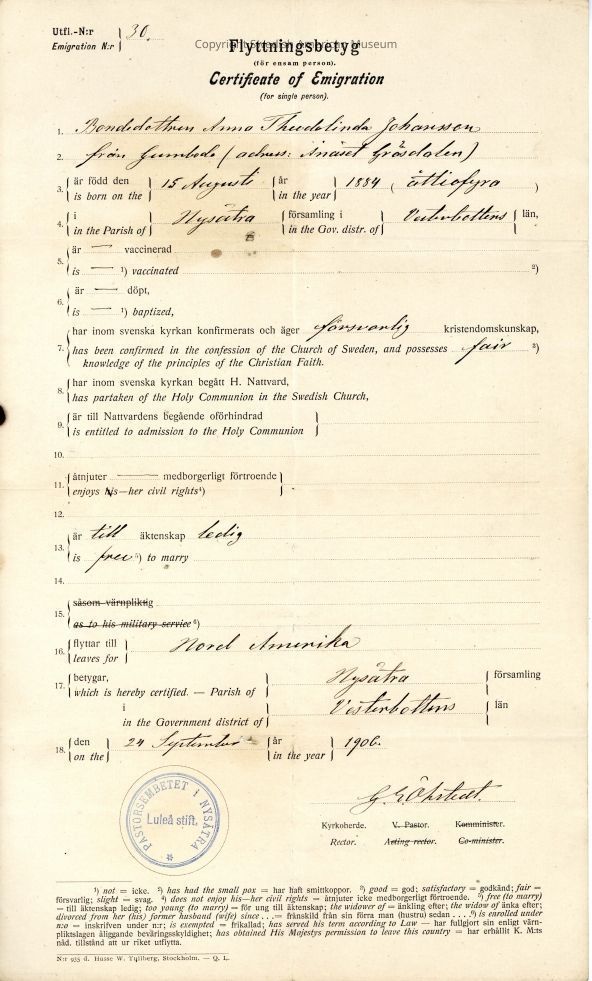 Utfl.-N:r
Emigration N:r
30.
Copyright Swedish American Museum
Flyttningsbetyg
(för ensam person).
Certificate of Emigration
(for single person).
1. Bondedottren Anna Theodolinda Johansson
2. från Gumboda (adress: Ånäset Gräsdalen)
3. är född den 15 Augusti år 1884 (åttiofyra)
is born on the in the year
4. i Nysätra församling i Vesterbottens län,
in the Parish of in the Gov. distr. of
5. är — vaccinerad
is — ¹) vaccinated ²)
6. är — döpt,
is — ¹) baptized,
7. har inom svenska kyrkan konfirmerats och äger försvarlig kristendomskunskap,
has been confirmed in the confession of the Church of Sweden, and possesses fair ³)
knowledge of the principles of the Christian Faith.
8. har inom svenska kyrkan begått H. Nattvard,
has partaken of the Holy Communion in the Swedish Church,
9. är till Nattvardens begående oförhindrad
is entitled to admission to the Holy Communion
10.
11. åtnjuter — medborgerligt förtroende
enjoys his—her civil rights⁴)
12.
13. är till äktenskap ledig
is free ⁵) to marry
14.
15. såsom värnpliktig
as to his military service ⁶)
16. flyttar till Nord Amerika
leaves for
17. betygar, Nysätra församling
which is hereby certified. — Parish of
i Vesterbottens län
in the Government district of
18. den 24 September år 1906.
on the in the year
Kyrkoherde. V. Pastor. Komminister.
Rector. Acting rector. Co-minister.
PASTORSEMBETET I NYSÄTRA
Luleå stift.
¹) not = icke. ²) has had the small pox = har haft smittkoppor. ³) good = god; satisfactory = godkänd; fair =
försvarlig; slight = svag. ⁴) does not enjoy his—her civil rights = åtnjuter icke medborgerligt förtroende. ⁵) free (to marry)
= till äktenskap ledig; too young (to marry) = för ung till äktenskap; the widower of = änkling efter; the widow of = änka efter;
divorced from her (his) former husband (wife) since . . . = frånskild från sin förra man (hustru) sedan . . . ⁶) is enrolled under
n:o = inskrifven under n:r; is exempted = frikallad; has served his term according to Law = har fullgjort sin enligt värn-
pliktslagen åliggande beväringsskyldighet; has obtained His Majestys permission to leave this country = har erhållit K. M:ts
nåd. tillstånd att ur riket utflytta.
N:r 935 d. Hasse W. Tullberg, Stockholm. — Q. L.